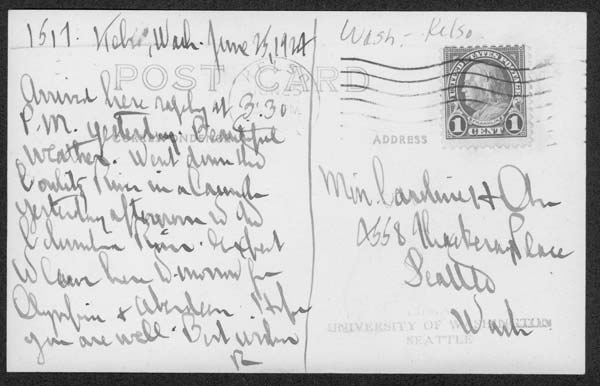 1517. Kelso, Wash. June 25, 1924
Wash - Kelso
POST CARD
UNITED STATES POSTAGE
1 CENT 1
CORRESPONDENCE
ADDRESS
Arrived here at 3:30
P.M. yesterday. Beautiful
weather. Went down the
Cowlitz River in a launch
yesterday afternoon to the
Columbia River. Expect
to leave here to-morrow for
Olympia & Aberdeen. Hope
you are well. Best wishes
R
Miss Caroline H. Ober
4558 Thackeray Place
Seattle
Wash
UNIVERSITY OF WASHINGTON
SEATTLE